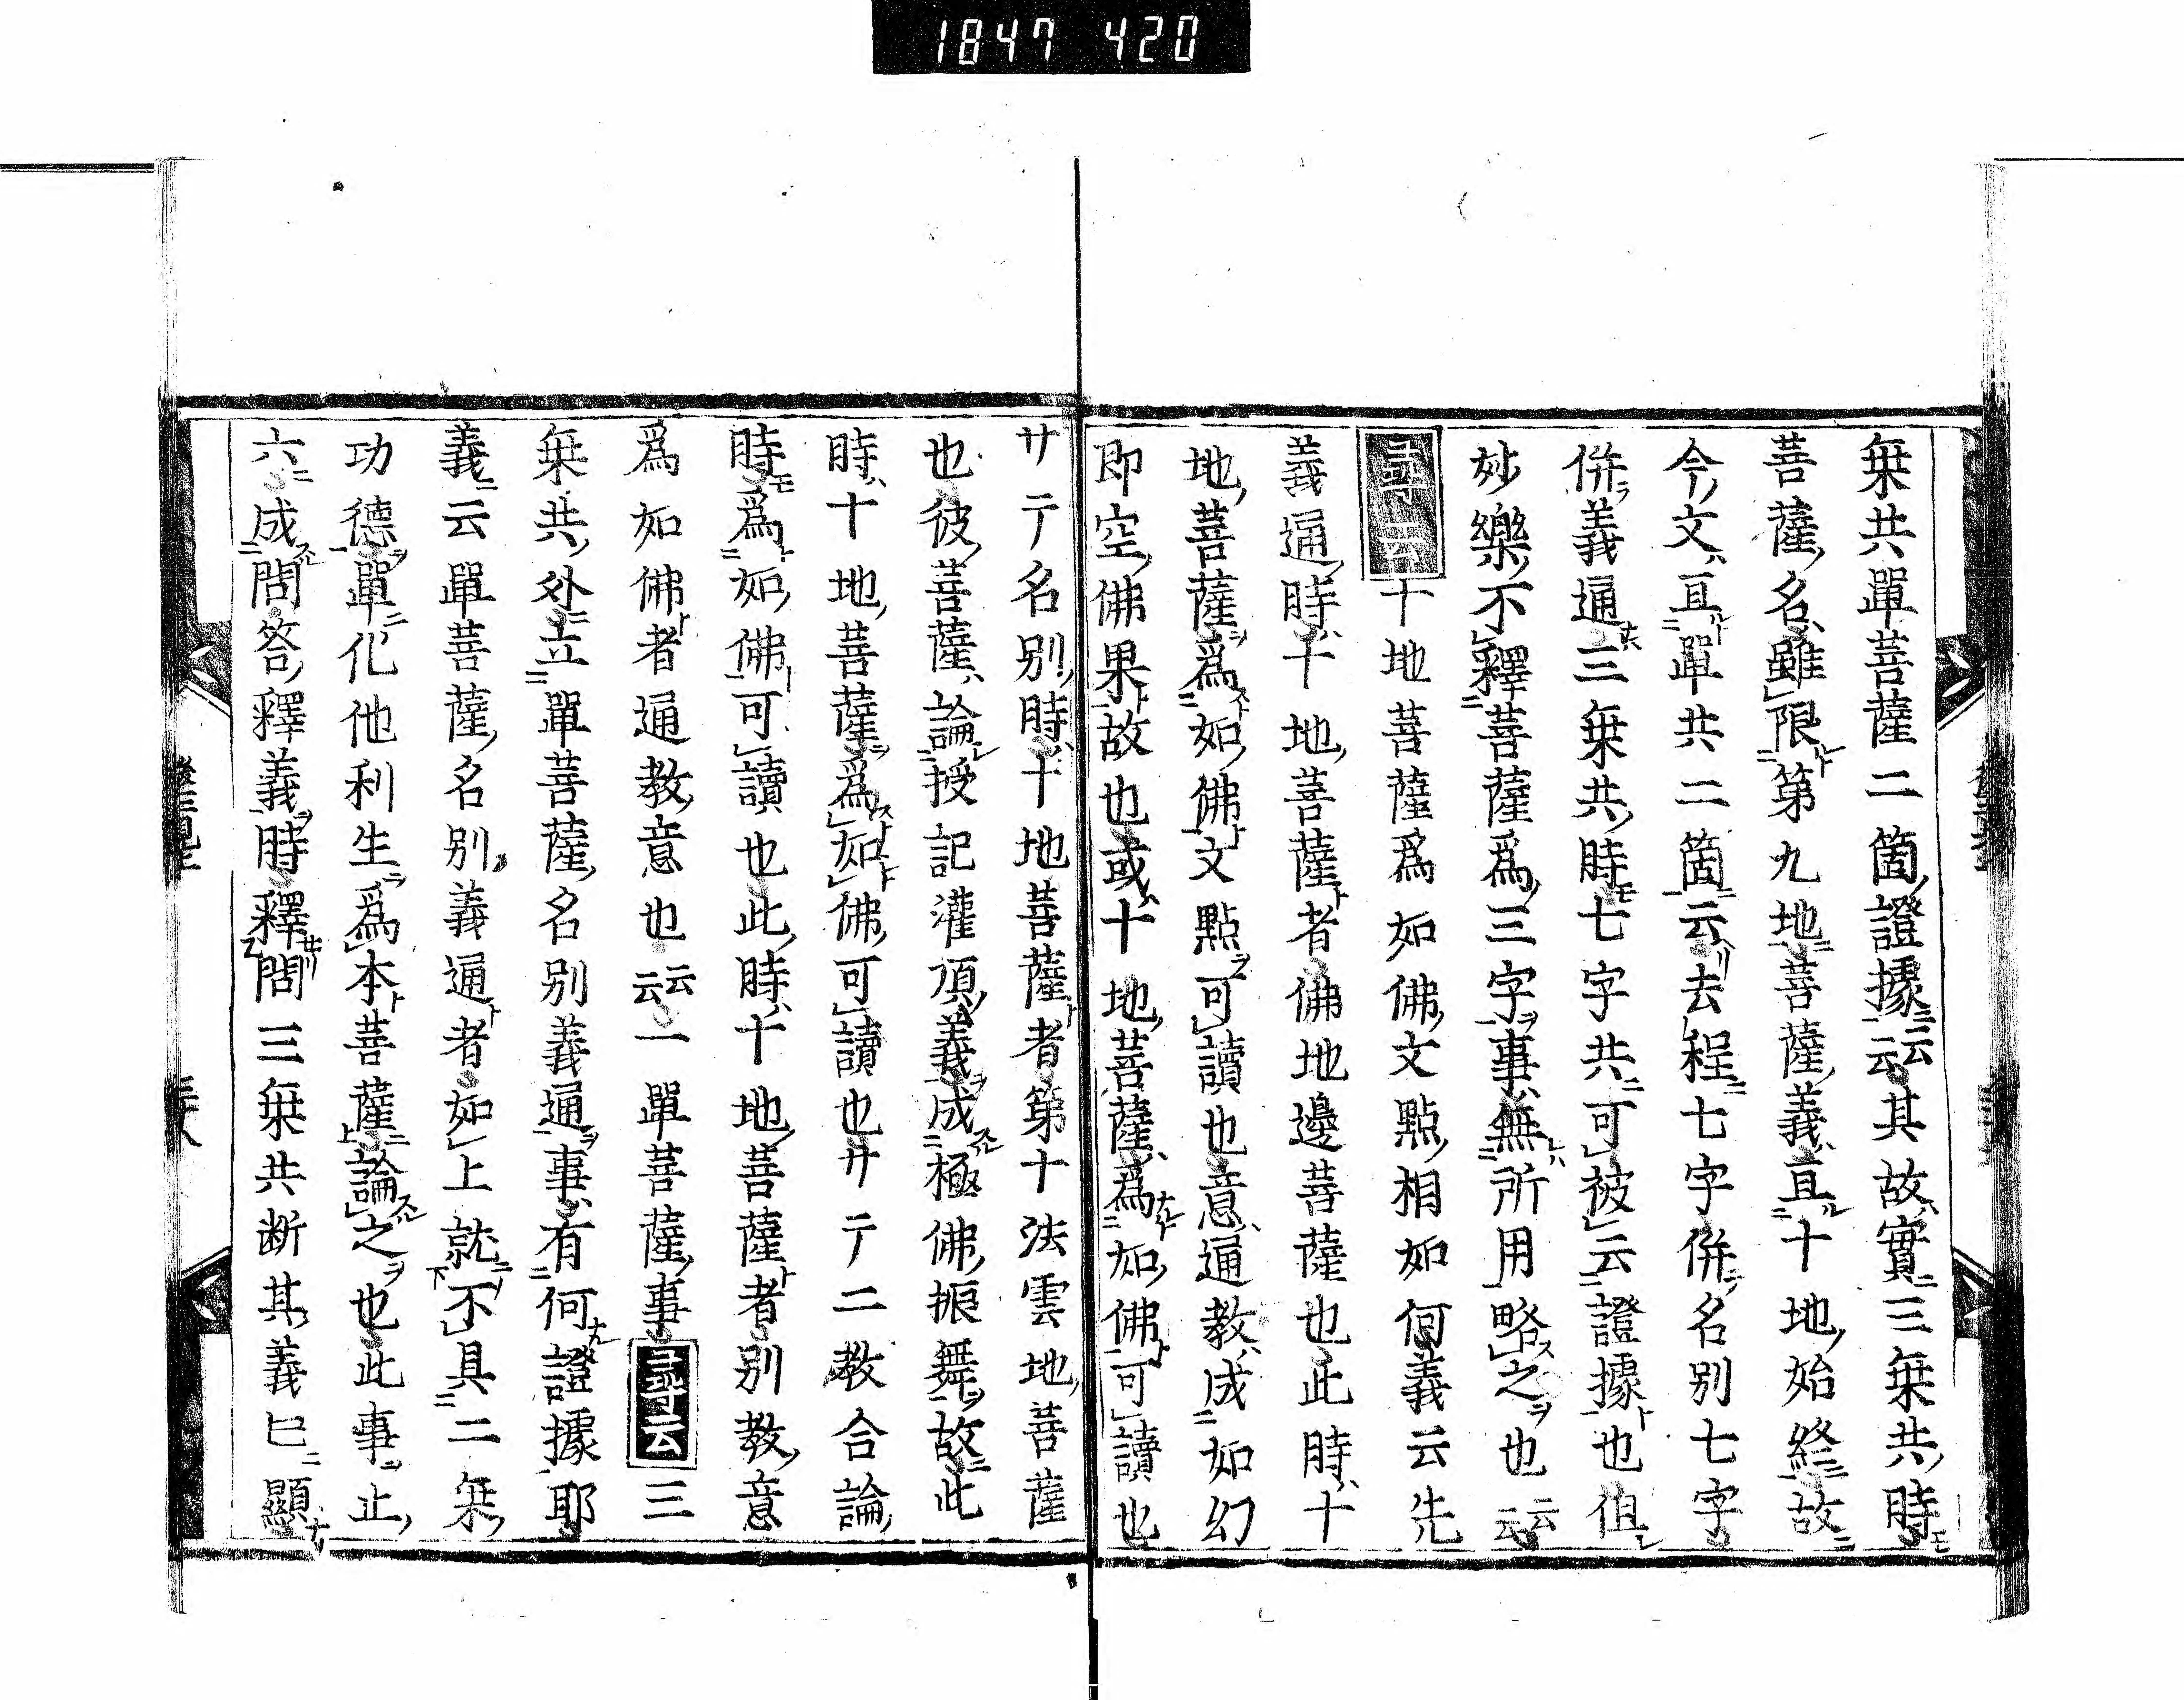 1847 420
無共單菩薩二箇證據云云其故實三無共時
菩薩名雖限第九地菩薩義亘十地始終故
今文亘單共二箇云去程七字併名別七字
併義通三無共時七字共可被云證據也但
妙樂不釋菩薩爲三字事無所用略之也云云
尋云十地菩薩爲如佛文點相如何義云先
義通時十地菩薩者佛地邊菩薩也此時十
地菩薩爲如佛文點可讀也意通教成如幻
即空佛果故也或十地菩薩爲如佛可讀也
サテ名別時十地菩薩者第十法雲地菩薩
也彼菩薩論授記灌頂義成極佛振舞故此
時十地菩薩爲如佛可讀也サテ二教合論
時爲如佛可讀也此時十地菩薩者別教意
爲如佛者通教意也云云一單菩薩事尋云三
無共外立單菩薩名別義通事有何證據耶
義云單菩薩名別義通者如上就不具二無
功德單化他利生爲本菩薩論之也此事止
六成問答釋義時釋問三無共断其義已顯